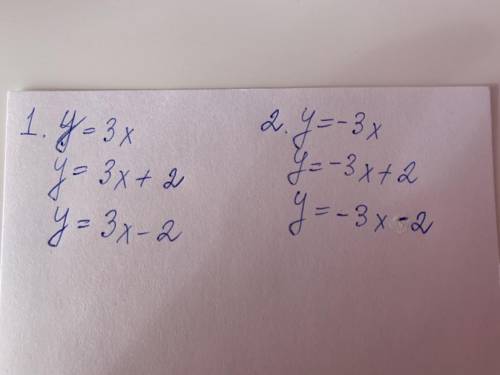 1. y = 3x
y = 3x + 2
y = 3x - 2
2. y = -3x
y = -3x + 2
y = -3x - 2